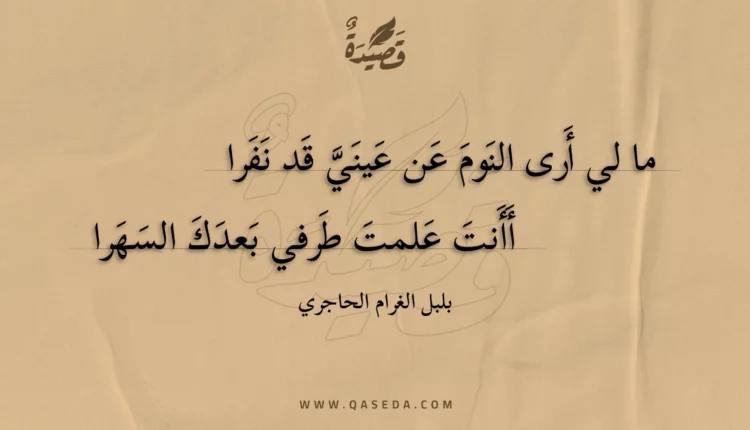 قَصِيدَةٌ
ما لي أَرى النَومَ عَن عَينَيَّ قَد نَفَرا
أَأَنتَ عَلمتَ طَرفي بَعدَكَ السَهَرا
بلبل الغرام الحاجري
WWW.QASEDA.COM